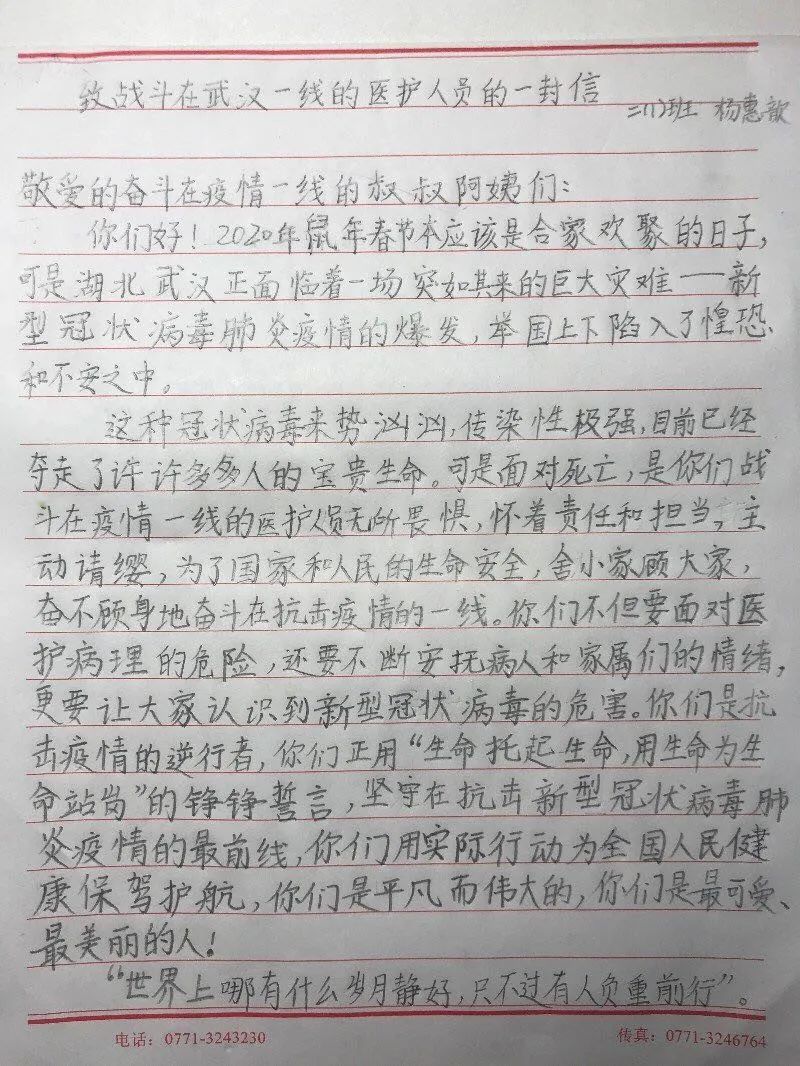 致战斗在武汉一线的医护人员的一封信
二(1)班 杨惠歆
敬爱的奋斗在疫情一线的叔叔阿姨们：
你们好！2020年鼠年春节本应该是合家欢聚的日子，
可是湖北武汉正面临着一场突如其来的巨大灾难——新
型冠状病毒肺炎疫情的爆发，举国上下陷入了惶恐
和不安之中。
这种冠状病毒来势汹汹，传染性极强，目前已经
夺走了许许多多人的宝贵生命。可是面对死亡，是你们战
斗在疫情一线的医护人员无所畏惧，怀着责任和担当，主
动请缨，为了国家和人民的生命安全，舍小家顾大家，
奋不顾身地奋斗在抗击疫情的一线。你们不但要面对医
护病理的危险，还要不断安抚病人和家属们的情绪，
更要让大家认识到新型冠状病毒的危害。你们是抗
击疫情的逆行者，你们正用“生命托起生命，用生命为生
命站岗”的铮铮誓言，坚守在抗击新型冠状病毒肺
炎疫情的最前线，你们用实际行动为全国人民健
康保驾护航，你们是平凡而伟大的，你们是最可爱、
最美丽的人！
“世界上哪有什么岁月静好，只不过有人负重前行”。
电话：0771-3243230
传真：0771-3246764